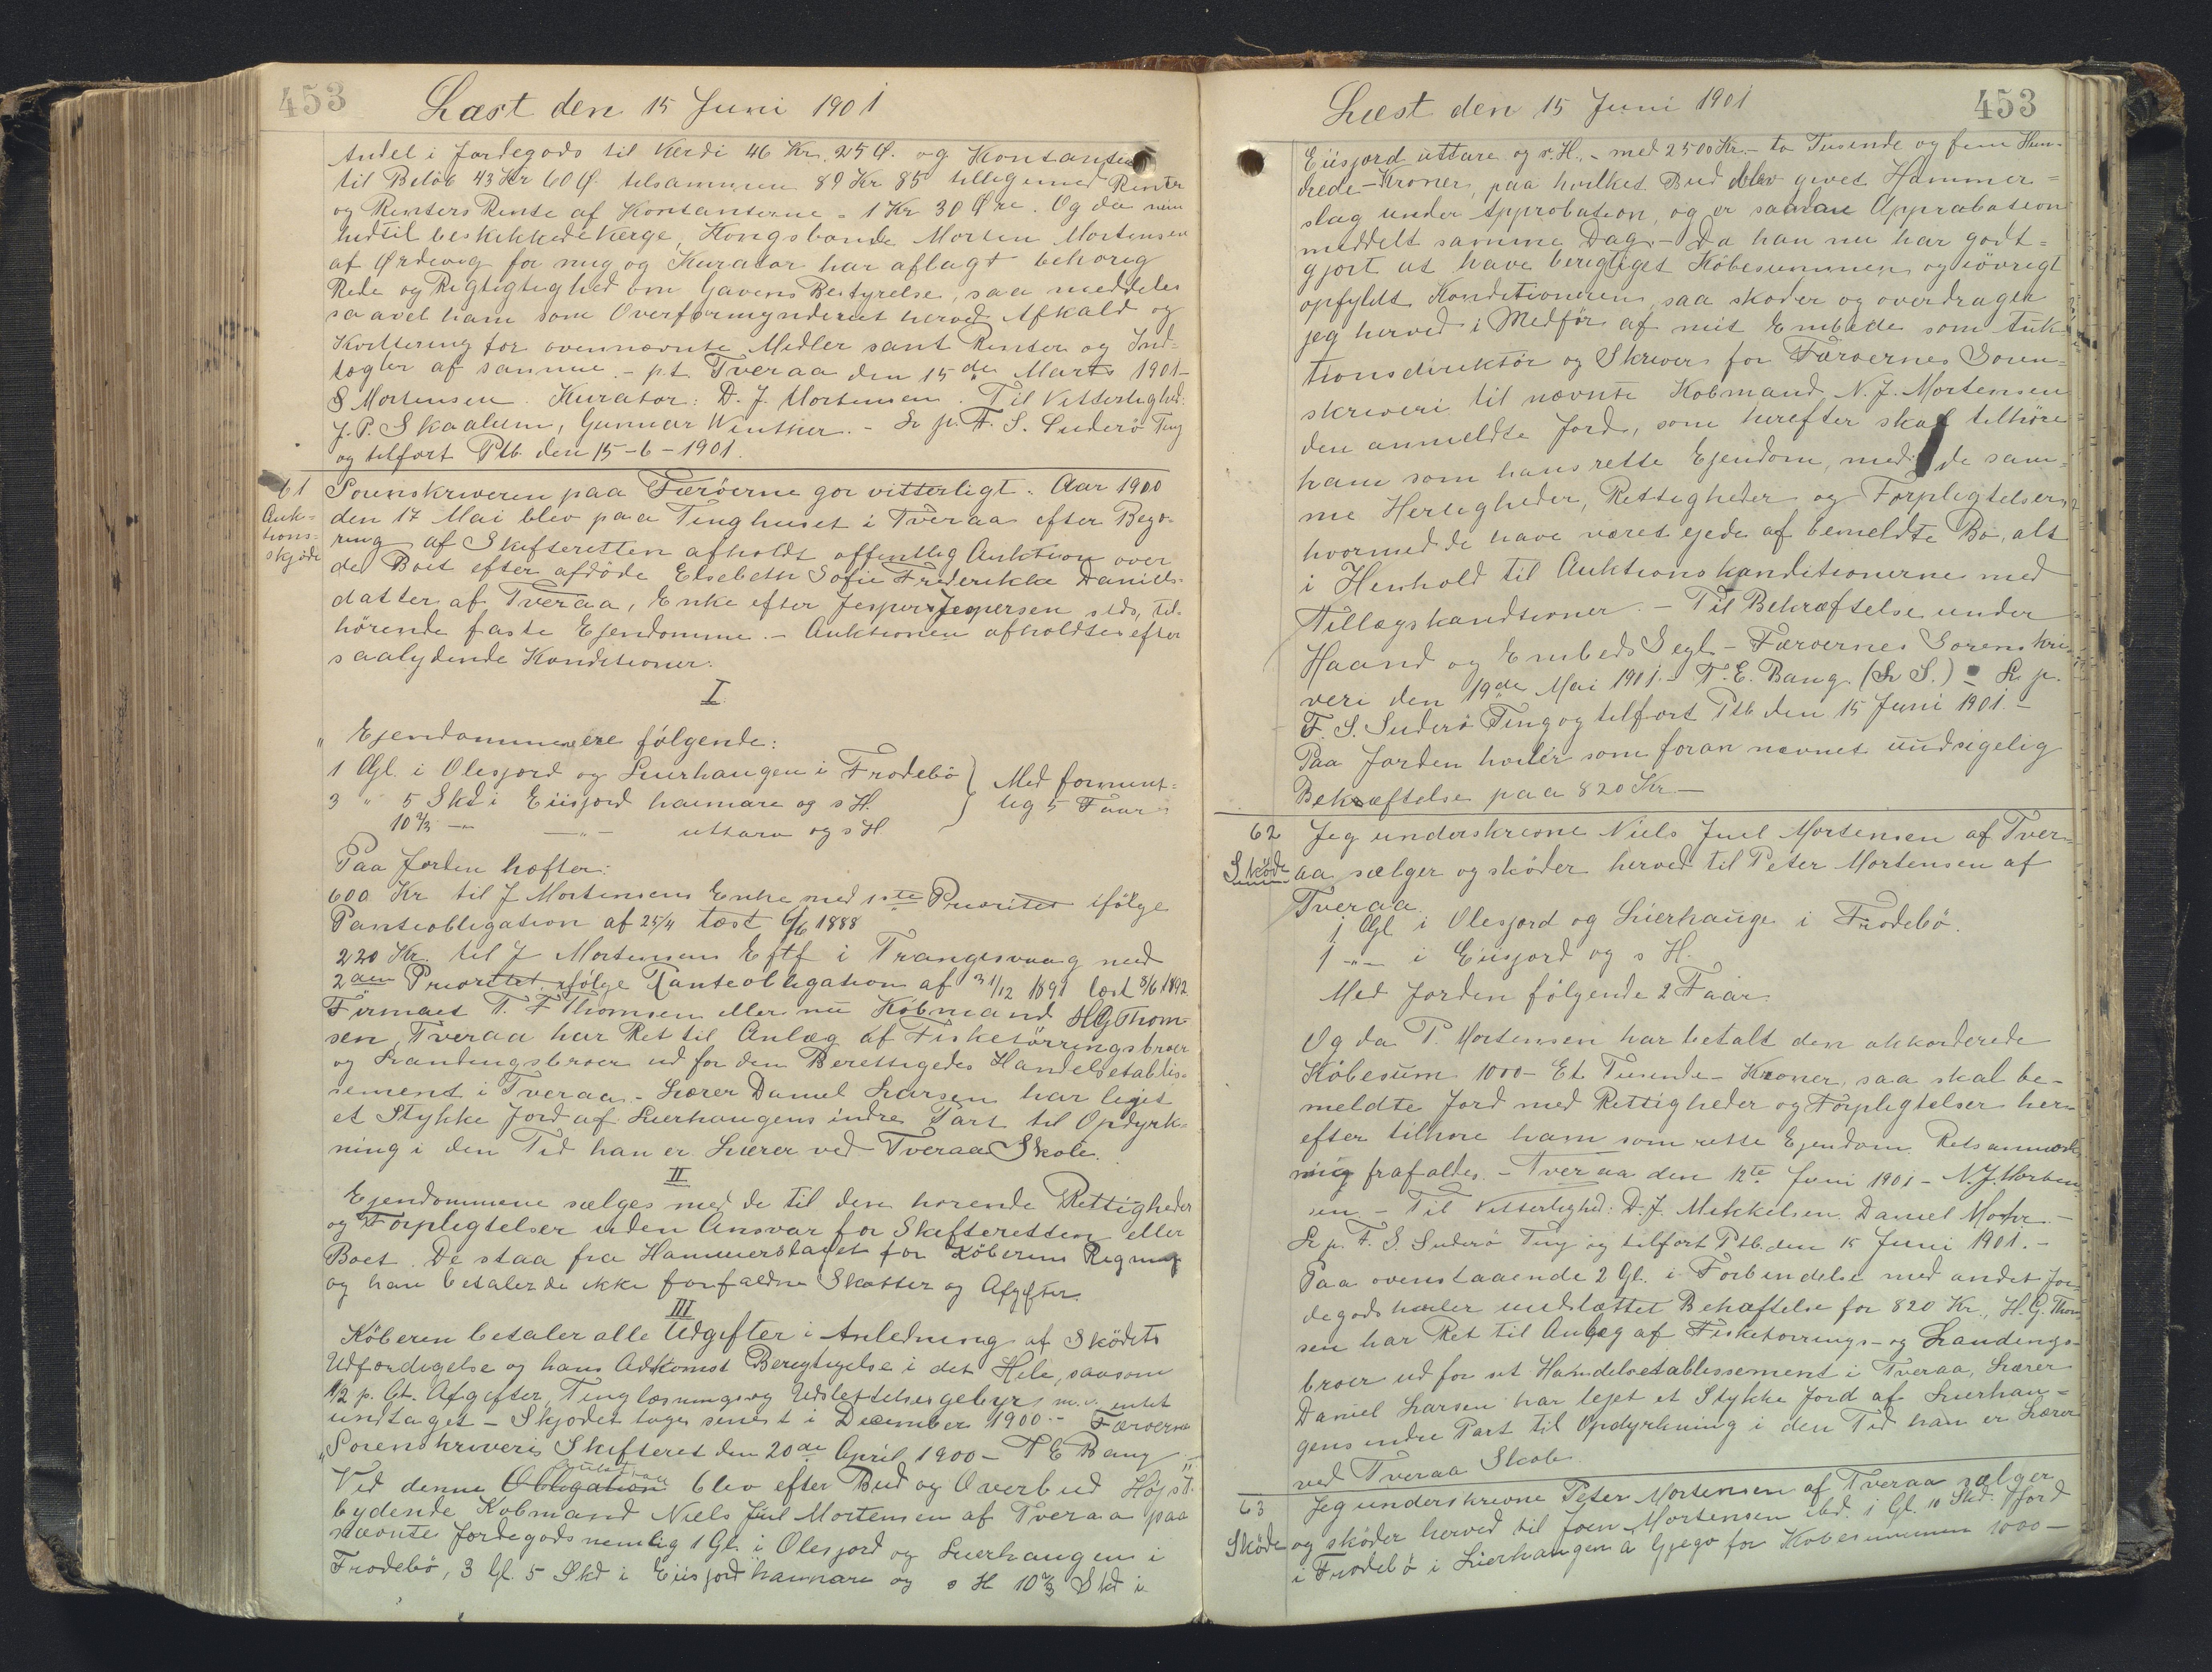 453
Læst den 15 Juni 1901
Andel i Jordegods til Værdi 46 Kr. 25 Ø. og Kontanter
til Beløb 43 Kr 60 Ø. tilsammen 89 Kr 85 tilligemed Renter
og Renters Rente af Kontanterne = 1 Kr 30 Øre. Og da min
hidtil beskikkede Værge, Kongsbonde Morten Mortensen
af Ørdevig for mig og Kurator har aflagt behørig
Rede og Rigtigtighed om Gavens Bestyrelse, saa meddeles
saavel ham som Overformynderiet herved Afkald og
Kvittering for ovennævnte Midler samt Renter og Ind=
tægter af samme. - p.t. Tveraa den 15de Marts 1901-
S Mortensen. Kurator: D. J. Mortensen. Til Vitterlighed:
J. P. Skaalum, Gunnar Winther. - Lr p. F. S. Suderö Ting
og tilført Ptb. den 15-6-1901.
61
Auk=
tions=
skjøde
Sorenskriveren paa Færöerne gör vitterligt: Aar 1900
den 17 Mai blev paa Tinghuset i Tveraa efter Begæ-
ring af Skifteretten afholdt offentlig Auktion over
de Boet efter afdöde Elsebeth Sofie Frederikka Daniels-
datter af Tveraa, Enke efter Jesper Jespersen stds, til-
hörende faste Ejendomme. - Auktionen afholdtes efter
saalydende Konditioner:
I
" Ejendommene ere fölgende:
1 Gl. i Olesjord og Lierhaugen i Frodebö } Med forment=
3 " 5 Skd i Eiisjord haimare og s H. } lig 5 Faar
10 2/3 -"- -"- uttara og s H
Paa Jorden hæfter:
600 Kr til J Mortensens Enke med 1ste Prioritet ifölge
Panteobligation af 25/4 læst 6/6 1888
220 Kr. til J Mortensens Eftf i Trangisvaag med
2den Prioritet ifölge Panteobligation af 31/12 1891 læst 8/6 1892
Firmaet T. F Thomsen eller nu Köbmand H G Thom-
sen, Tveraa har Ret til Anlæg af Fisketörringsbroer
og Landingsbroer ud for den Berettigedes Handelsetablis-
sement i Tveraa. - Lærer Daniel Larsen har lejet
et Stykke Jord af Lierhaugens indre Part til Opdyrk-
ning i den Tid han er Lærer ved Tveraa Skole.
II
Ejendommene sælges med de til dem hørende Rettigheder
og Forpligtelser uden Ansvar for Skifteretten eller
Boet. De staa fra Hammerslaget for Köberens Regning
og han betaler de ikke forfaldne Skatter og Afgifter.
III
Köberen betaler alle Udgifter i Anledning af Sködets
Udfærdigelse og hans Adkomst Berigtigelse i det Hele, saasom
1/2 p. Ct. Afgifter, Tinglæsnings og Udslettelsesgebyr m. v. intet
undtaget - Skjødet tages senest i December 1900. - Færøernes
Sorenskriveri, Skifteret den 20de April 1900 - T E Bang
Ved denne Obligation Auktion blev efter Bud og Overbud Højst-
bydende Købmand Niels Juel Mortensen af Tveraa paa
nævnte Jordegods nemlig 1 Gl. i Olesjord og Lierhaugen i
Frodebö, 3 Gl. 5 Skd i Eiisjord haimara og s H 10 2/3 Skd i
Læst den 15 Juni 1901
453
Eiisjord uttare og s. H., - med 2500 Kr. - to Tusende og fem Hun-
drede - Kroner, paa hvilket Bud blev givet Hammer=
slag under Approbation, og er saadan Approbation
meddelt samme Dag. - Da han nu har godt=
gjort at have berigtiget Köbesummen og iövrigt
opfyldt Konditionerne, saa skøder og overdrager
jeg herved i Medför af mit Embede som Auk
tionsdirektör og Skriver for Færøernes Soren=
skriveri til nævnte Købmand N. J. Mortensen
den anmeldte Jord, som herefter skal tilhöre
ham som hans rette Ejendom, med de sam=
me Herligheder, Rettigheder og Forpligtelser,
hvormed de have været ejede af bemeldte Bo, alt
i Henhold til Auktionskonditionerne med
Tillægskonditioner. - Til Bekræftelse under
Haand og Embeds Segl - Færøernes Sorenskri-
veri den 19de Mai 1901. - T. E. Bang. (L S.) - Lr p.
F. S. Suderö Ting og tilført Ptb. den 15 Juni 1901. -
Paa Jorden hviler som foran nævnt uudsigelig
Behæftelse paa 820 Kr. -
62
Sköde
Jeg underskrevne Niels Juel Mortensen af Tver-
aa sælger og sköder herved til Peter Mortensen af
Tveraa
1 Gl i Olesjord og Lierhauge i Frodebö.
1 -"- i Eiisjord og s H.
Med Jorden fölgende 2 Faar.
Og da P. Mortensen har betalt den akkorderede
Köbesum 1000 - Et Tusende - Kroner, saa skal be-
meldte Jord med Rettigheder og Forpligtelser her=
efter tilhøre ham som rette Ejendom. Retsanmærk
ning frafaldes. - Tveraa den 12te Juni 1901 - N. J. Morten
sen - Til Vitterlighed: D. J. Mikkelsen. Daniel Mohr -
Lr p. F. S. Suderö Ting og tilført Ptb. den 15 Juni 1901. -
Paa ovenstaaende 2 Gl. i Forbindelse med andet Jor
degods hviler uudslettet Behæftelse for 820 Kr., H. G. Thom
sen har Ret til Anlæg af Fisketörrings- og Landings-
broer ud for sit Handelsetablissement i Tveraa, Lærer
Daniel Larsen har lejet et Stykke Jord af Lierhau=
gens indre Part til Opdyrkning i den Tid han er Lærer
ved Tveraa Skole
63
Sköde
Jeg underskrevne Peter Mortensen af Tveraa sælger
og sköder herved til Joen Mortensen ibd. 1 Gl. 10 Skd. Jord
i Frodebö i Lierhaugen á Gjegv for Købesummen 1000 -